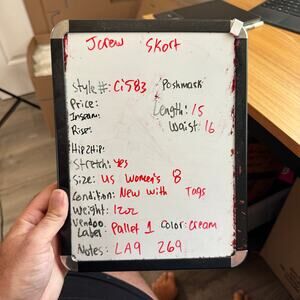 Jcrew Skort
Style#: Ci583 Poshmark
Price: Length: 15
Inseam: Waist: 16
Rise:
Hip2Hip:
Stretch: Yes
Size: US Women's 8
Condition: New with Tags
Weight: 12oz
Vendoo
Label: Pallet 1 Color: Cream
Notes: LA9 269